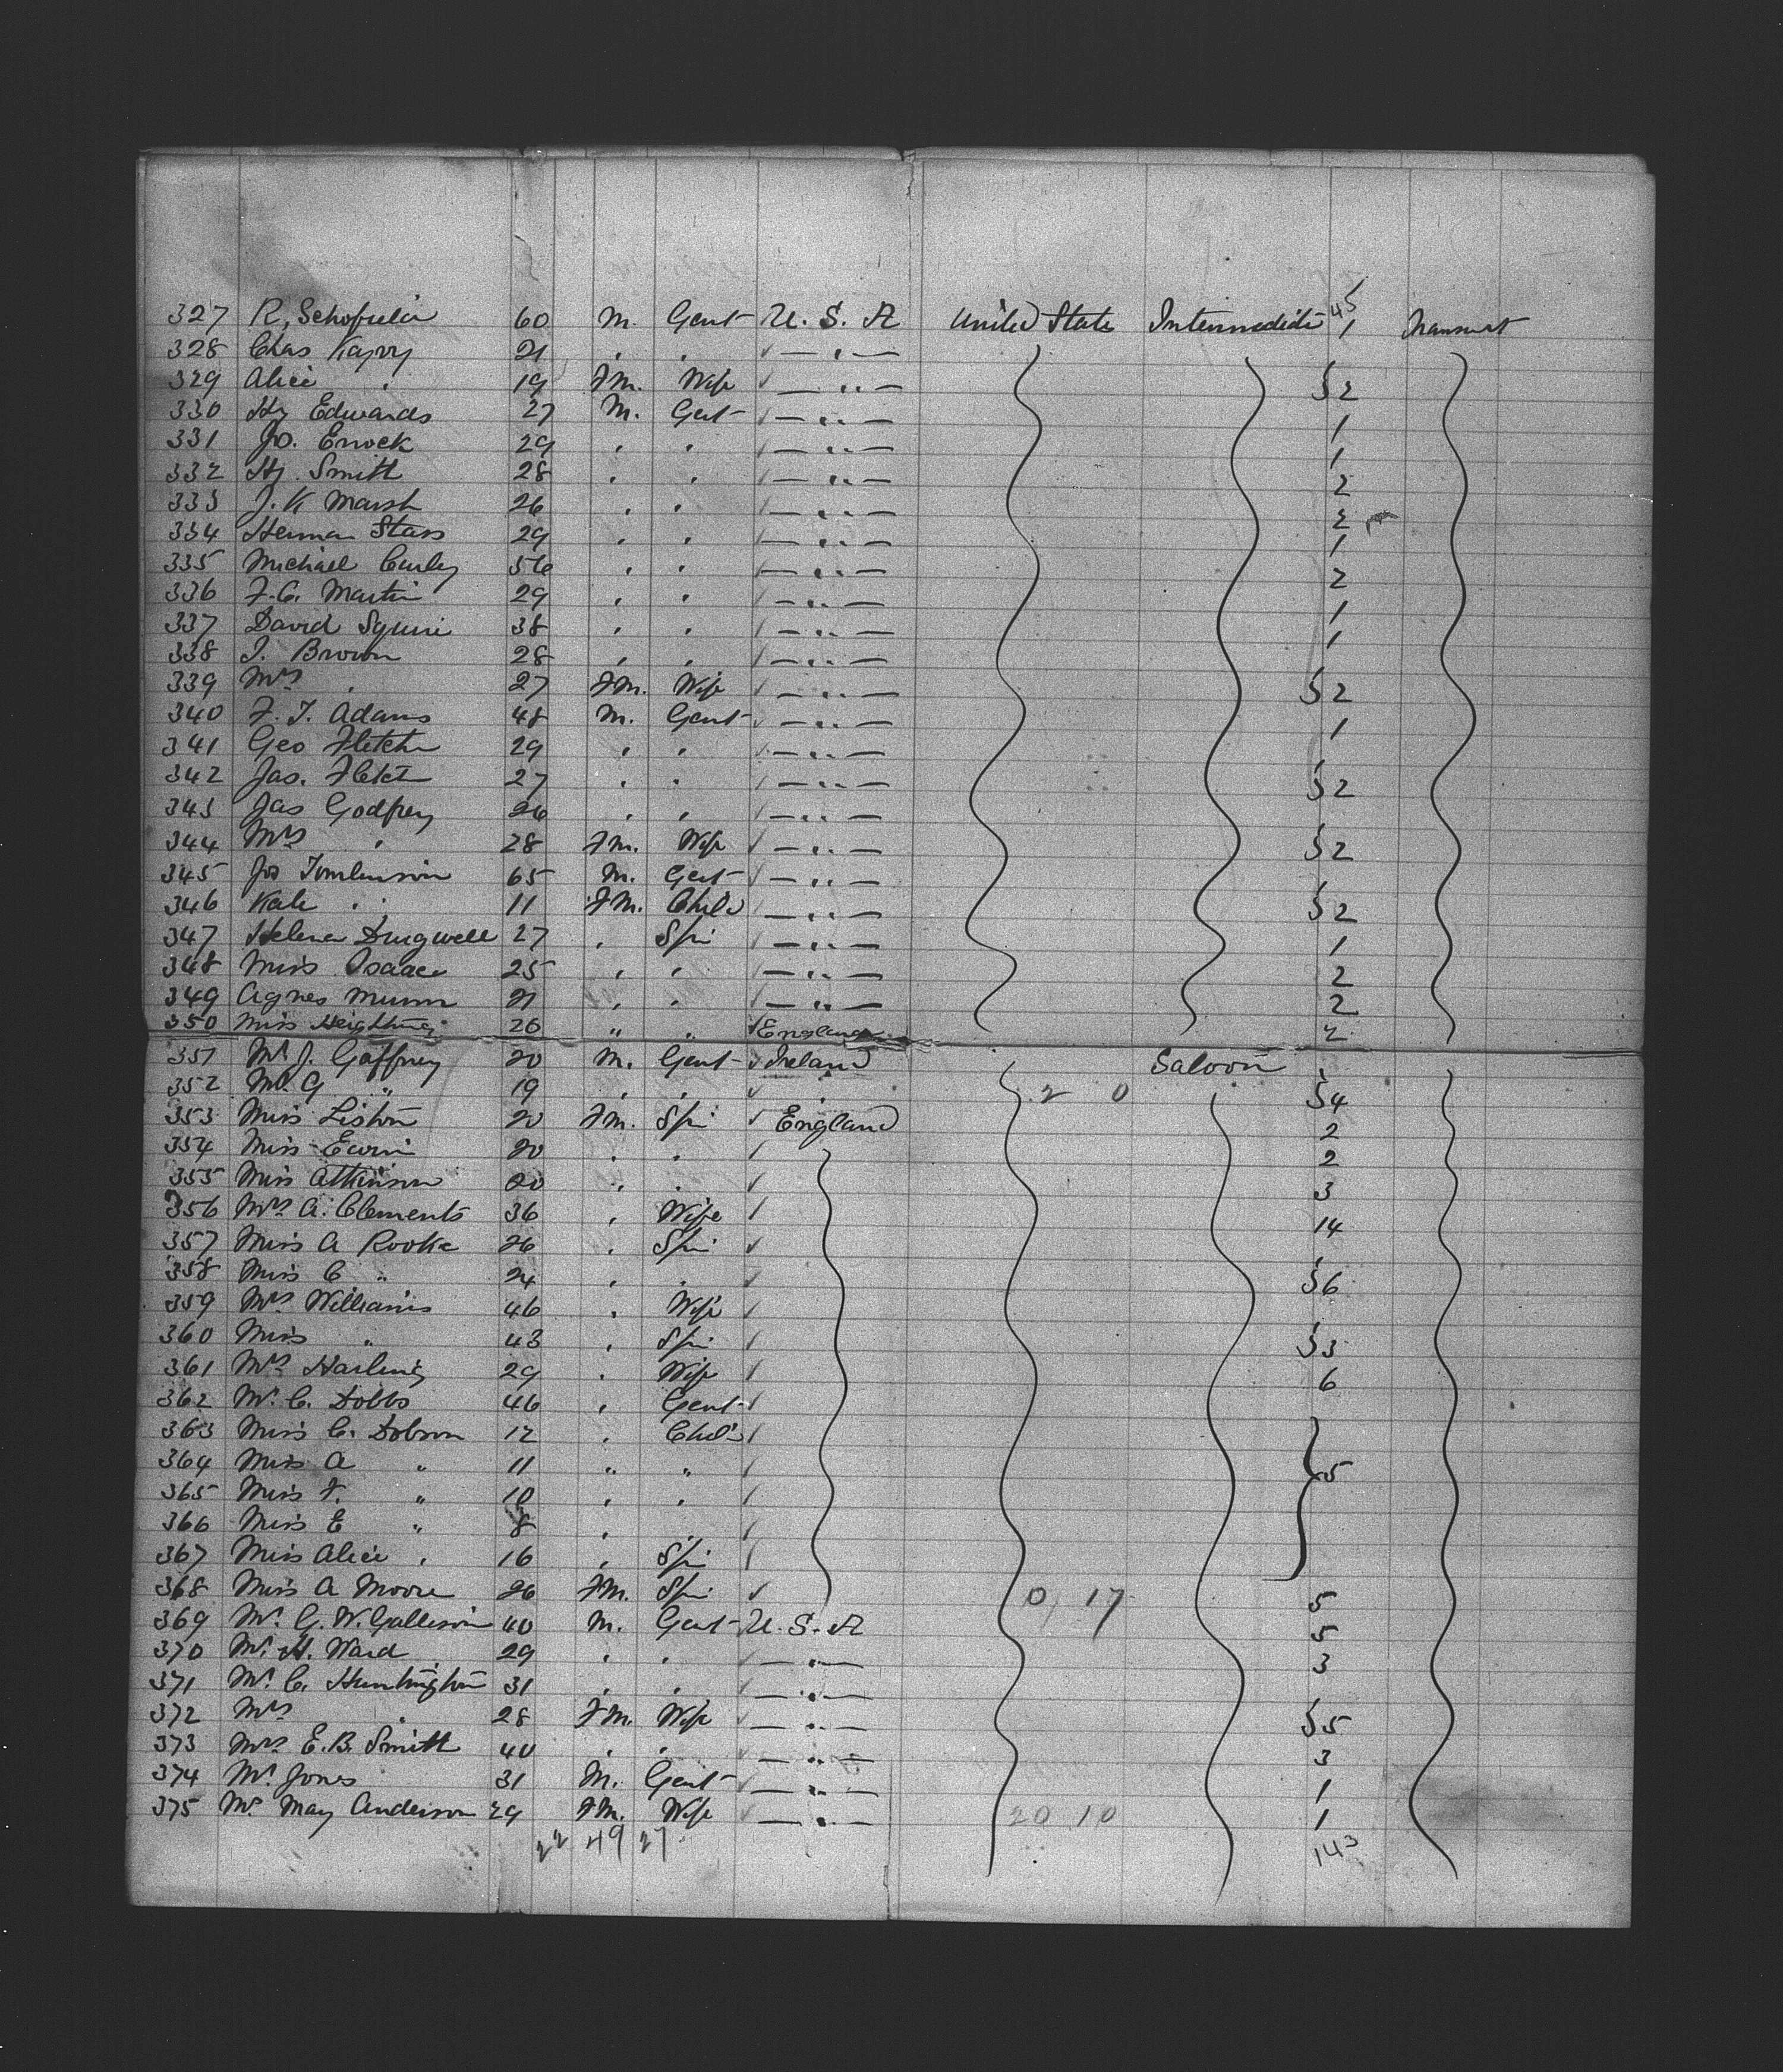 45
327 R. Schofield 60 M. Gent U. S. A United State Intermediate 1 Transient
328 Chas 21 " " — " —
329 Alice " 19 Fm. Wife — " — 2
330 Hy Edwards 27 M. Gent — " — 1
331 Jo. Enock 29 " " — " — 1
332 Hy. Smith 28 " " — " — 2
333 J. K Marsh 26 " " — " — 2
334 Herman Stass 29 " " — " — 1
335 Michael Curley 56 " " — " — 2
336 F. C. Martin 29 " " — " — 1
337 David Squire 38 " " — " — 1
338 J. Brown 28 " " — " —
339 Mrs " 27 Fm. Wife — " — 2
340 F. J. Adams 48 M. Gent — " — 1
341 Geo Fletcher 29 " " — " —
342 Jas. Fletcher 27 " " — " — 2
343 Jas Godfrey 26 " " — " —
344 Mrs " 28 Fm. Wife — " — 2
345 Jos Tomlinson 65 M. Gent — " —
346 Kate " 11 Fm. Child — " — 2
347 Helena Dingwell 27 " Spi — " — 1
348 Miss Isaac 25 " " — " — 2
349 Agnes Munn 21 " " — " — 2
350 Miss 26 " " England 2
351 Mr J. Gaffney 20 M. Gent Ireland Saloon
352 Mr. G " 19 " " " 2 0 4
353 Miss Liston 20 Fm. Spi England 2
354 Miss Ewin 20 " " 2
355 Miss Atkinson 20 " " 3
356 Mrs A. Clements 36 " Wife 14
357 Miss A Rooke 26 " Spi
358 Miss C " 24 " " 6
359 Mrs Williams 46 " Wife
360 Miss " 43 " Spi 3
361 Mrs Harling 29 " Wife 6
362 Mr. C. Dobbs 46 " Gent
363 Miss C. Dobson 12 " Child
364 Miss A " 11 " " 5
365 Miss F. " 10 " "
366 Miss E " 8 "
367 Miss Alice " 16 " Spi
368 Miss A Moore 26 Fm. Spi 0 17 5
369 Mr. G. W. Gallison 40 M. Gent U. S. A 5
370 Mr. H. Ward 29 " " — " — 3
371 Mr. C. Huntington 31 " " — " —
372 Mrs " 28 Fm. Wife — " — 5
373 Mrs E. B. Smith 40 " " — " — 3
374 Mr Jones 31 M. Gent — " — 1
375 Mrs May Anderson 29 Fm. Wife — " — 20 10 1
22 49 27 143